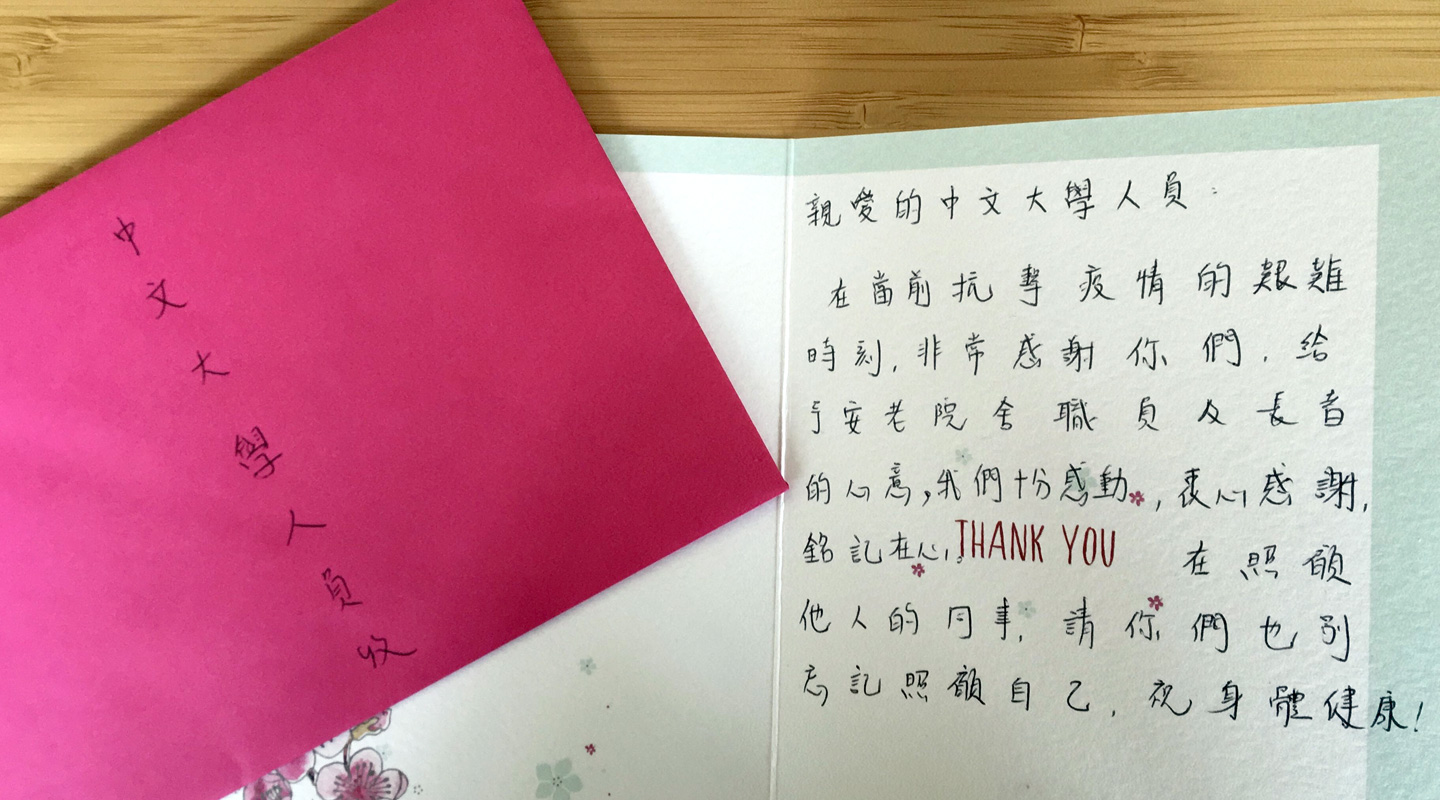 中文大學人員收
親愛的中文大學人員：
在當前抗擊疫情的艱難
時刻,非常感謝你們,給
予安老院舍職員及長者
的心意,我們十份感動,衷心感謝,
銘記在心,THANK YOU 在照顧
他人的同事,請你們也別
忘記照顧自己,祝身體健康!